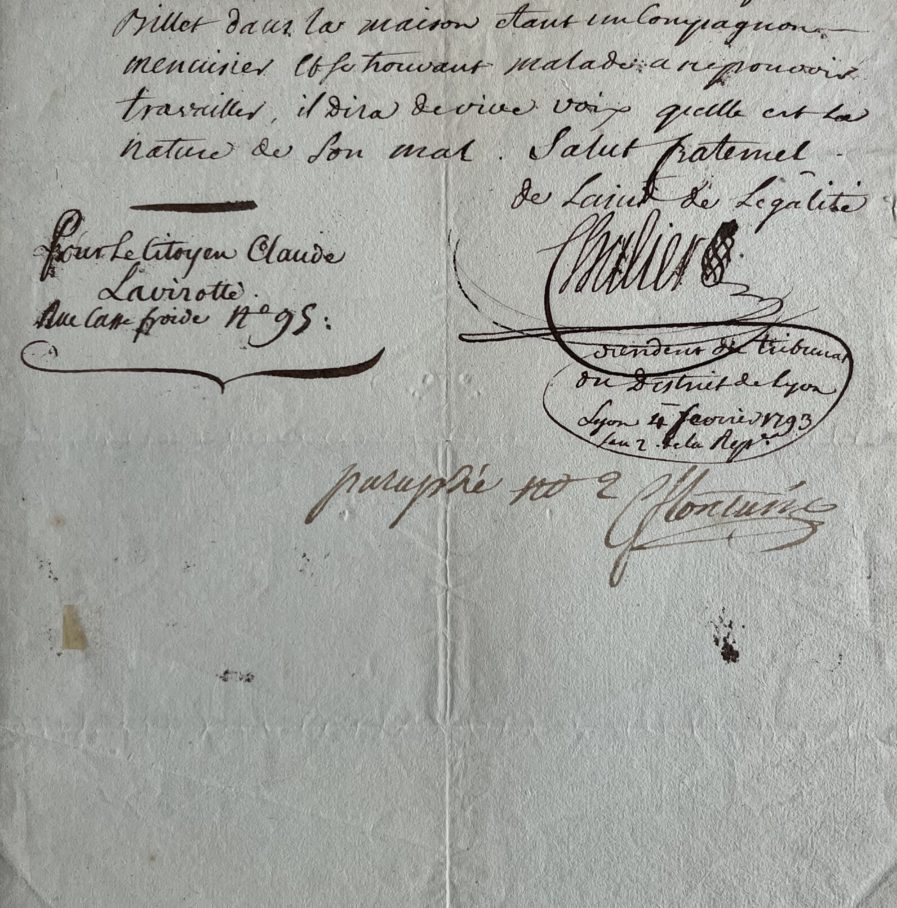 Billet dans la maison étant un Compagnon
menuisier et se trouvant malade a ne pouvoir
travailler, il dira de vive voix quelle est la
nature de Son mal. Salut fraternel
de L'ami de L'égalité
Pour Le Citoyen Claude
Lavirotte.
Rue Casse froide N.° 95:
Chalier
président du tribunal
du District de Lyon
Lyon 4 fevrier 1793
l'an 2 de la Rep.
paraphé n° 2